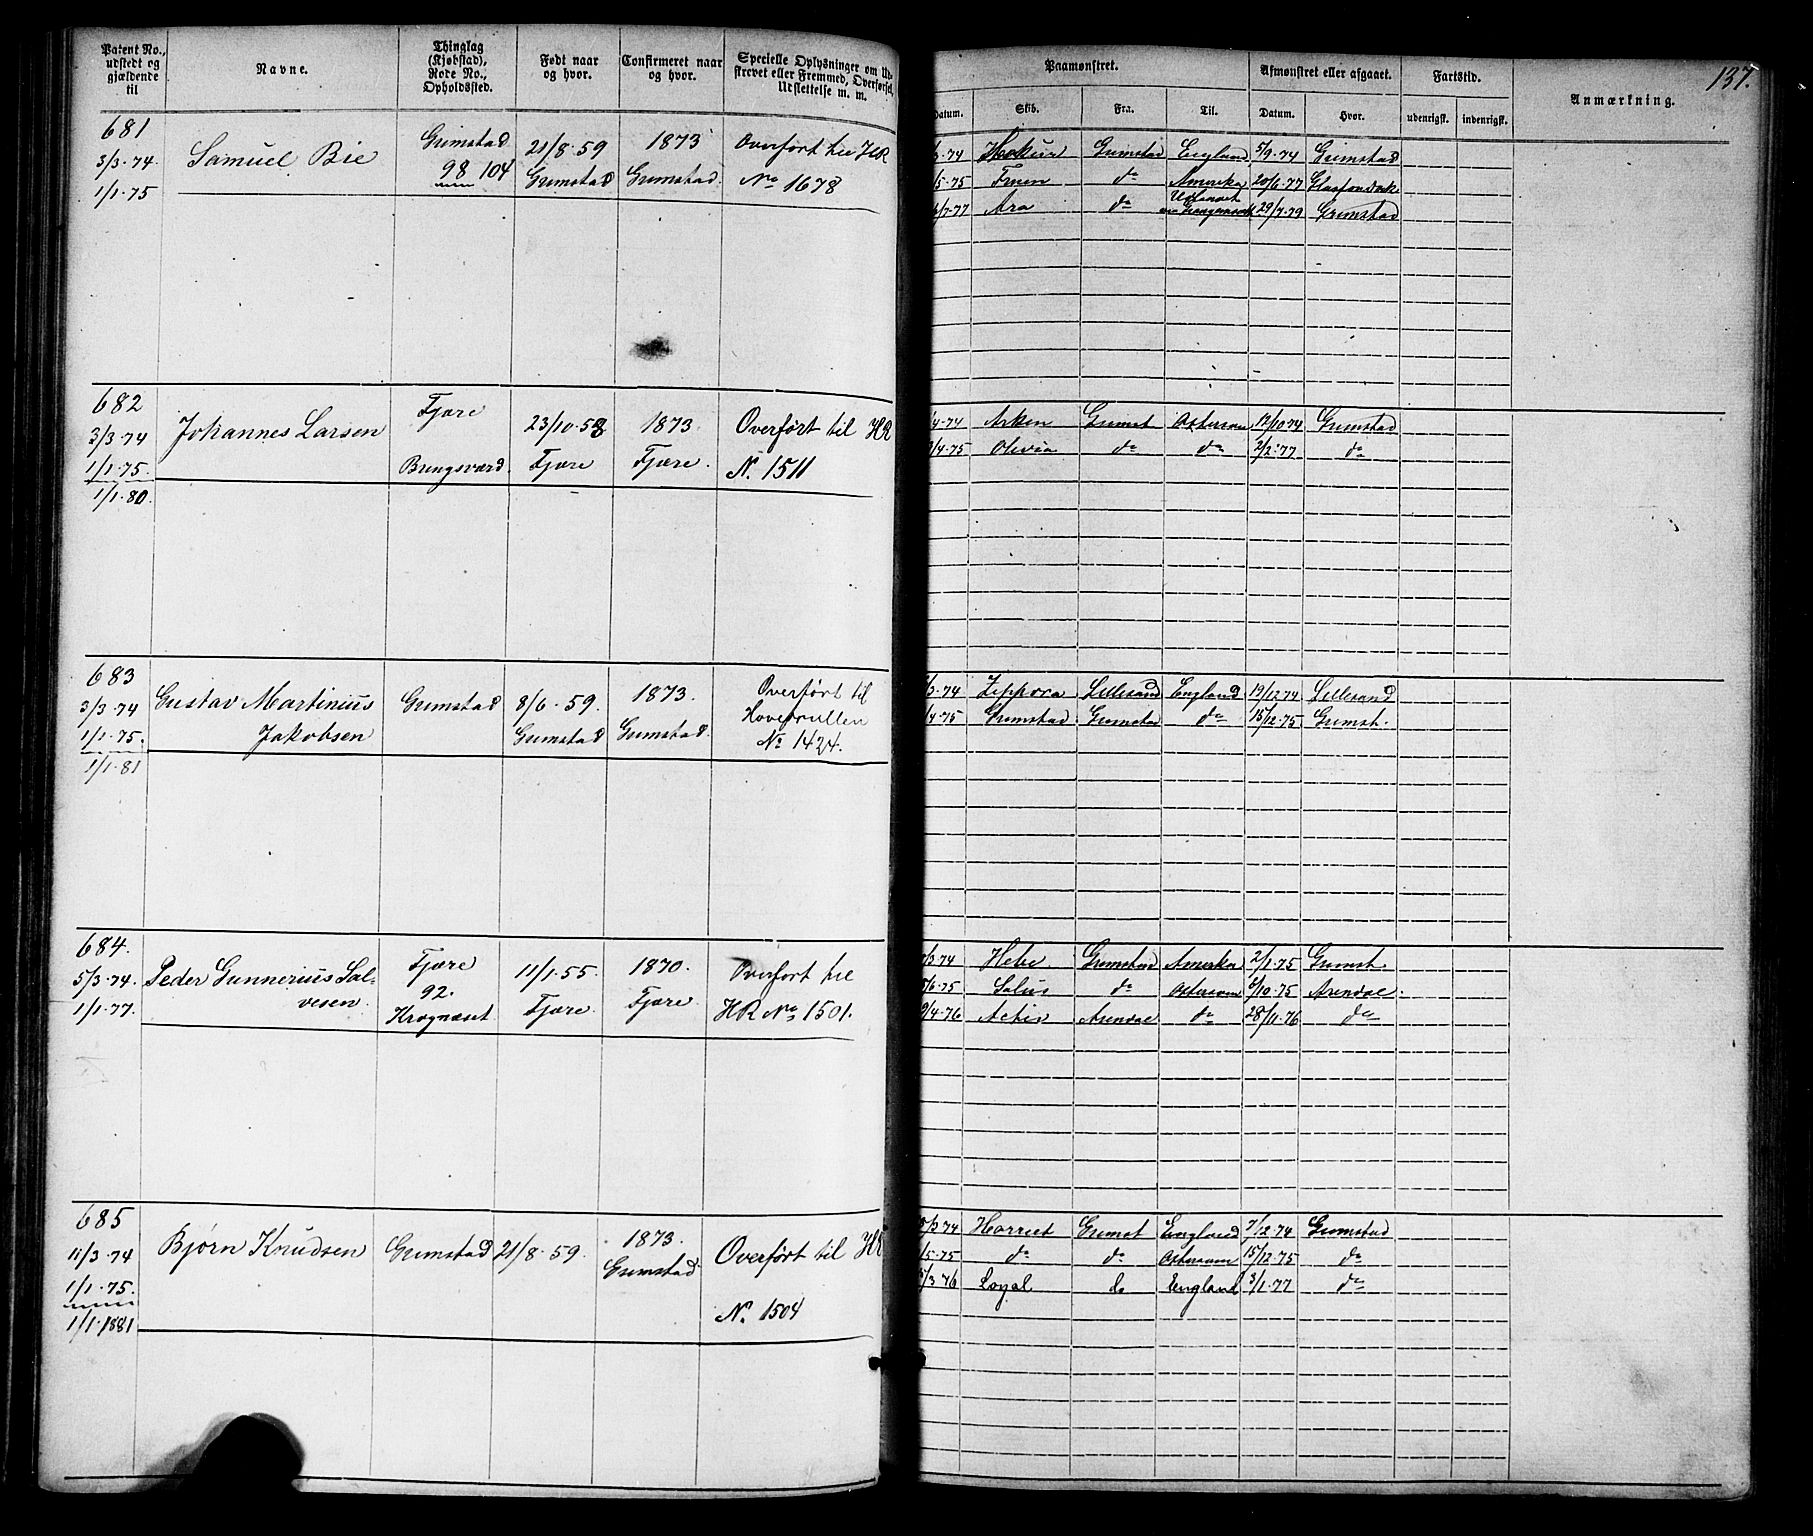 137.
Patent No., udstedt og gjældende til
Navne.
Thinglag (Kjøbstad), Rode No., Opholdssted.
Født naar og hvor.
Confirmeret naar og hvor.
Specielle Oplysninger om Udskrevet eller Fremmed, Overførsel, Udslettelse m. m.
Paamønstret.
Datum. Skib. Fra. Til.
Afmønstret eller afgaaet.
Datum. Hvor.
Fartstid.
udenrigsk. indenrigsk.
Anmærkning.
681 Grimstad 21/8·59 1873 Overført til HR
3/3·74 Samuel Bie 98 104 Grimstad Grimstad. No 1678
1/1·75
/3·74 Grimstad England 5/9·74 Grimstad
/5·75 do Amerika 20/6·77
/7·77 Ara do 29/7·79 Grimstad
682 Fjære 23/10·58 1873 Overført til HR
3/3·74 Johannes Larsen
1/1·75 Fjære Fjære. N. 1511
1/1·80
/4·74 Grimst Østersøen 12/10·74 Grimstad
/4·75 Olivia do do 2/2·77 do
683 Gustav Martinius Grimstad 8/6·59. 1873. Overført til
3/3·74 Jakobsen Grimstad Grimstad. Hovedrullen
1/1·75. No 1424.
1/1·81
/3·74 Zippora Lillesand England 19/12·74 Lillesand
/4·75 Grimstad Grimstad do 15/12·75 Grimst.
684. Fjære 11/1·55. 1870. Overført til
5/3·74. Peder Gunnerius Sal- 92. Fjære. Fjære HR No 1501.
1/1·77. vesen. Krognæset
/3·74 Hebe Grimstad Amerika 2/1·75 Grimst.
5/6·75 Salus do Østersøen 6/10·75 Arendal.
9/4·76 Arendal do 28/11·76 do
685 Bjørn Knudsen Grimstad 21/8·59. 1873. Overført til HR
11/3·74 Grimstad
1/1·75. N. 1504
1/1·1881
/3·74 Harriet Grimst England 7/12·74 Grimstad
/5·75 do do Østersøen 15/12·75 do
5/3·76 Loyal do England 3/1·77 do